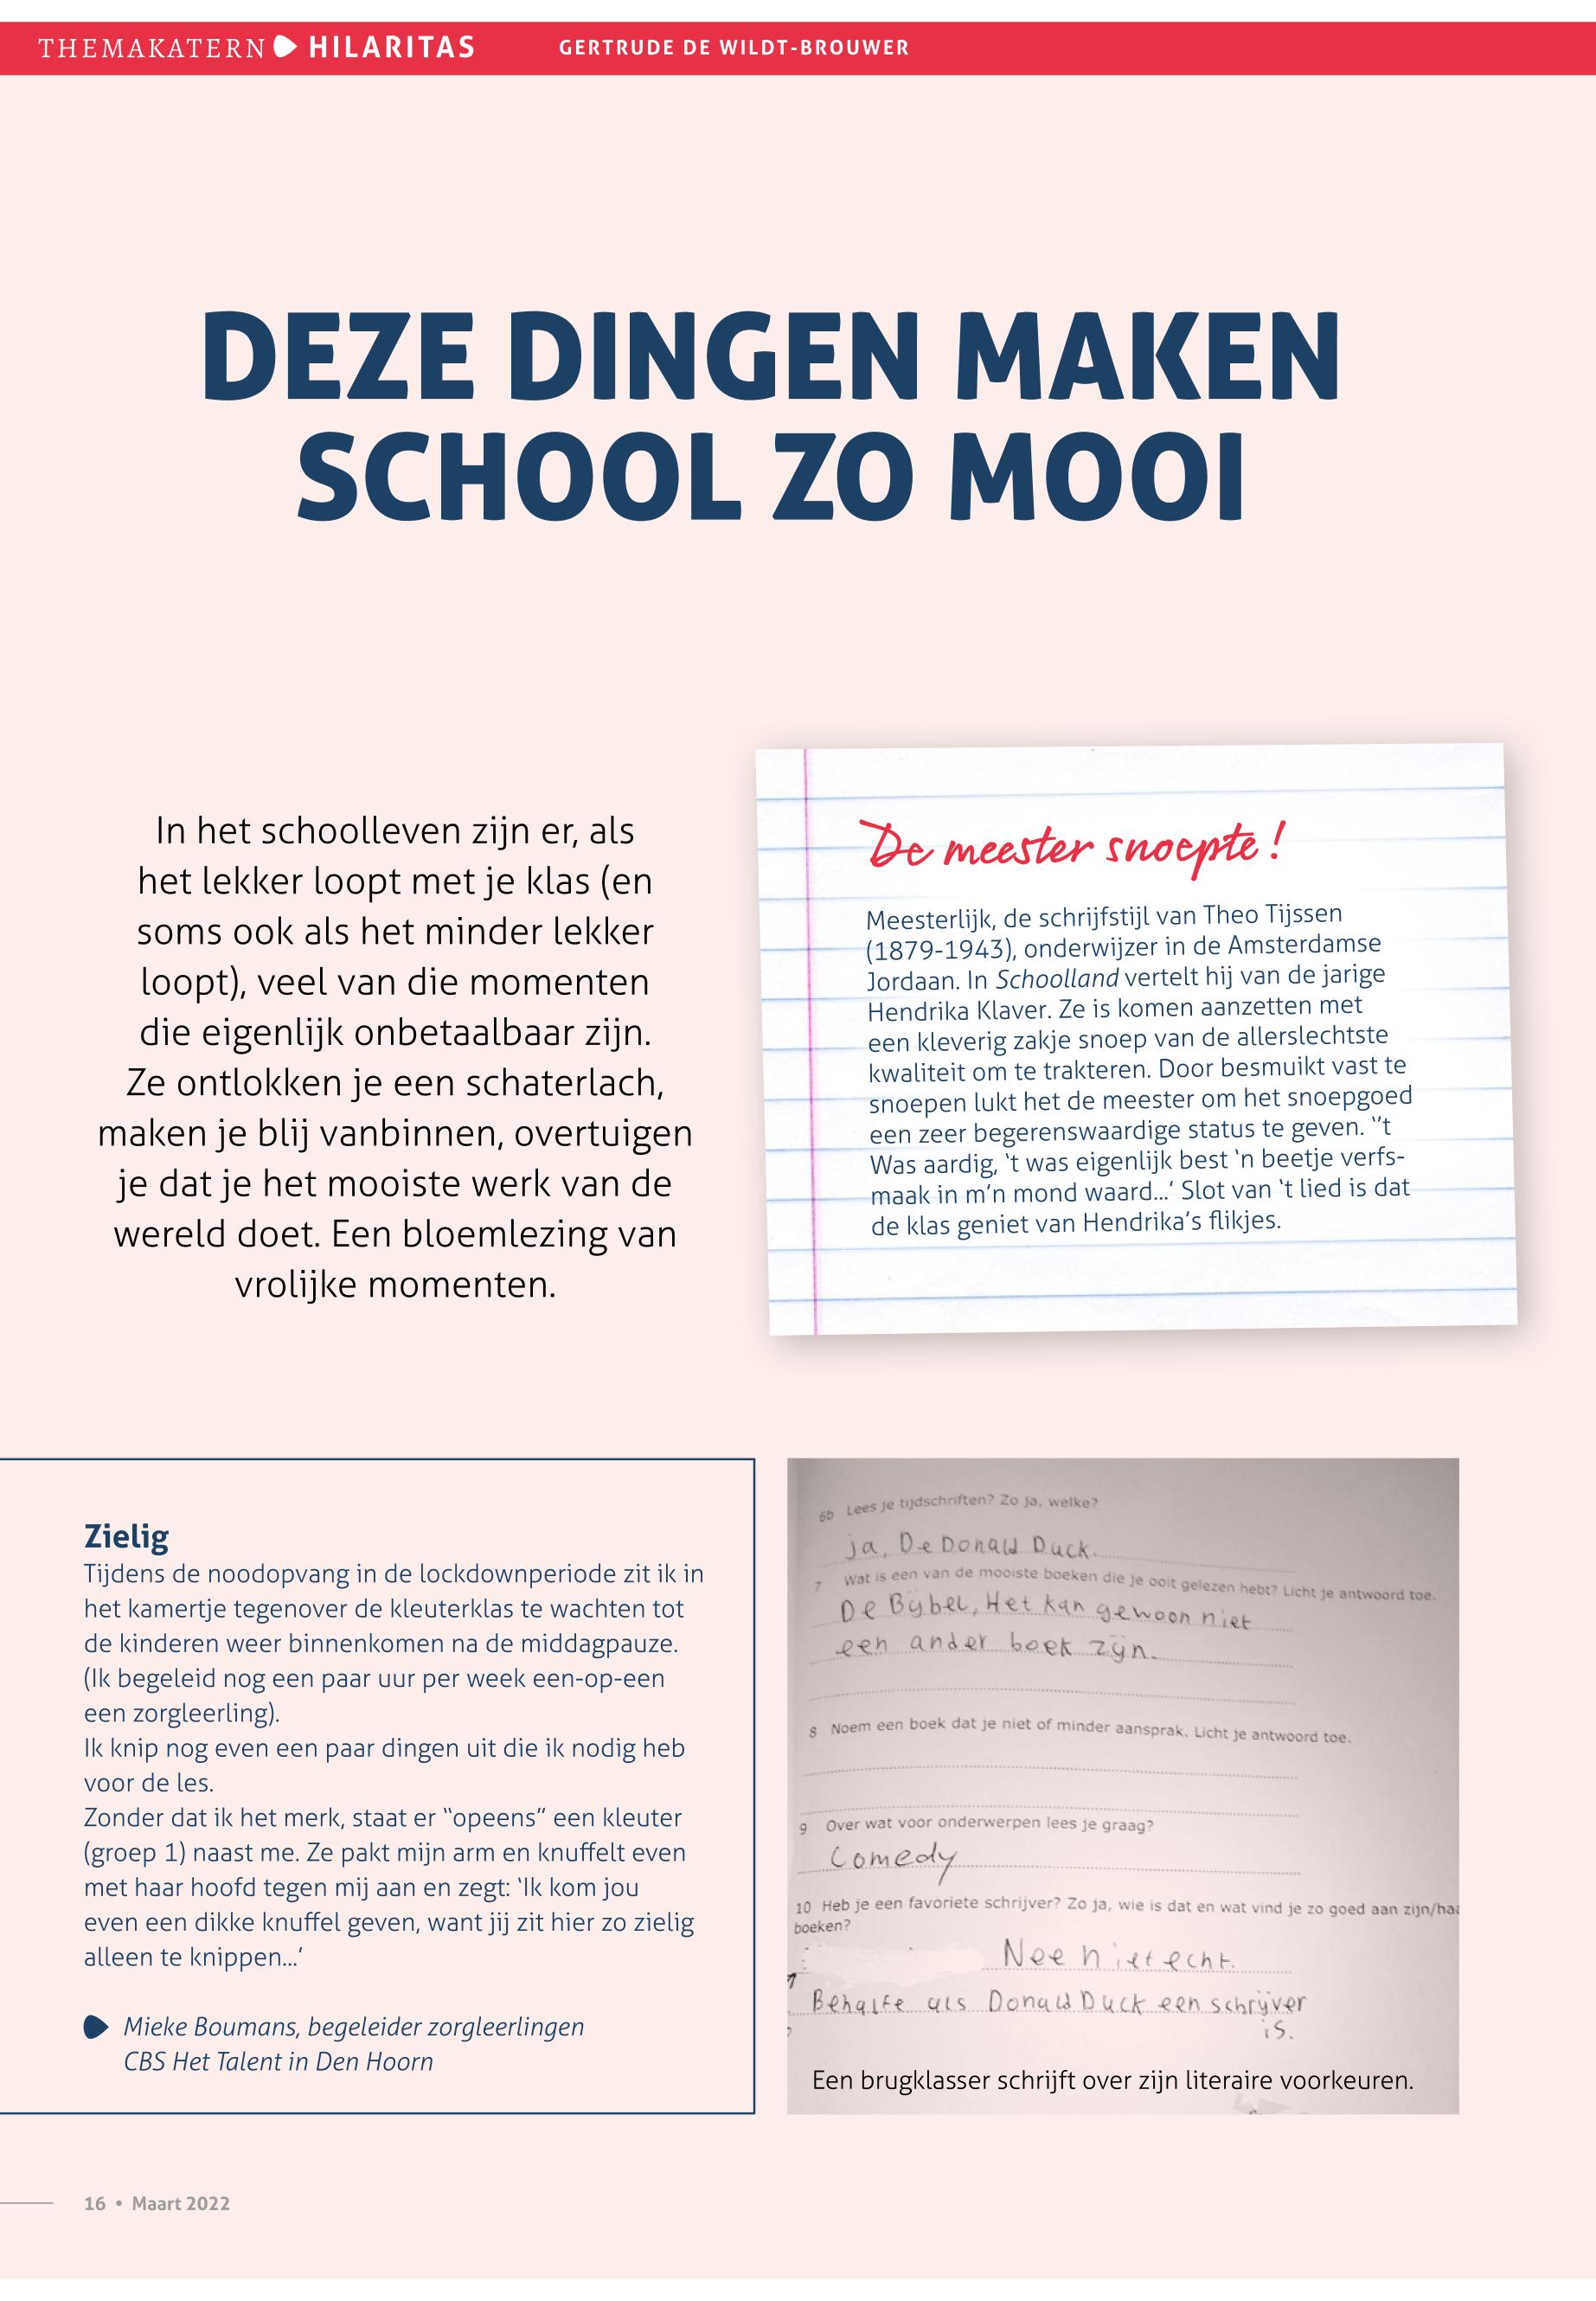 THEMAKATERN HILARITAS GERTRUDE DE WILDT-BROUWER
DEZE DINGEN MAKEN
SCHOOL ZO MOOI
In het schoolleven zijn er, als
het lekker loopt met je klas (en
soms ook als het minder lekker
loopt), veel van die momenten
die eigenlijk onbetaalbaar zijn.
Ze ontlokken je een schaterlach,
maken je blij vanbinnen, overtuigen
je dat je het mooiste werk van de
wereld doet. Een bloemlezing van
vrolijke momenten.
De meester snoepte!
Meesterlijk, de schrijfstijl van Theo Tijssen
(1879-1943), onderwijzer in de Amsterdamse
Jordaan. In Schoolland vertelt hij van de jarige
Hendrika Klaver. Ze is komen aanzetten met
een kleverig zakje snoep van de allerslechtste
kwaliteit om te trakteren. Door besmuikt vast te
snoepen lukt het de meester om het snoepgoed
een zeer begerenswaardige status te geven. ‘‘t
Was aardig, ‘t was eigenlijk best ‘n beetje verfs-
maak in m’n mond waard...’ Slot van ‘t lied is dat
de klas geniet van Hendrika’s flikjes.
Zielig
Tijdens de noodopvang in de lockdownperiode zit ik in
het kamertje tegenover de kleuterklas te wachten tot
de kinderen weer binnenkomen na de middagpauze.
(Ik begeleid nog een paar uur per week een-op-een
een zorgleerling).
Ik knip nog even een paar dingen uit die ik nodig heb
voor de les.
Zonder dat ik het merk, staat er “opeens” een kleuter
(groep 1) naast me. Ze pakt mijn arm en knuffelt even
met haar hoofd tegen mij aan en zegt: ‘Ik kom jou
even een dikke knuffel geven, want jij zit hier zo zielig
alleen te knippen...’
Mieke Boumans, begeleider zorgleerlingen
CBS Het Talent in Den Hoorn
6b Lees je tijdschriften? Zo ja, welke?
ja, De Donald Duck.
7 Wat is een van de mooiste boeken die je ooit gelezen hebt? Licht je antwoord toe.
De Bijbel, Het kan gewoon niet
een ander boek zijn.
8 Noem een boek dat je niet of minder aansprak. Licht je antwoord toe.
9 Over wat voor onderwerpen lees je graag?
Comedy
10 Heb je een favoriete schrijver? Zo ja, wie is dat en wat vind je zo goed aan zijn/haa
boeken?
Nee niet echt.
Behalfe als Donald Duck een schrijver
is.
Een brugklasser schrijft over zijn literaire voorkeuren.
16 • Maart 2022